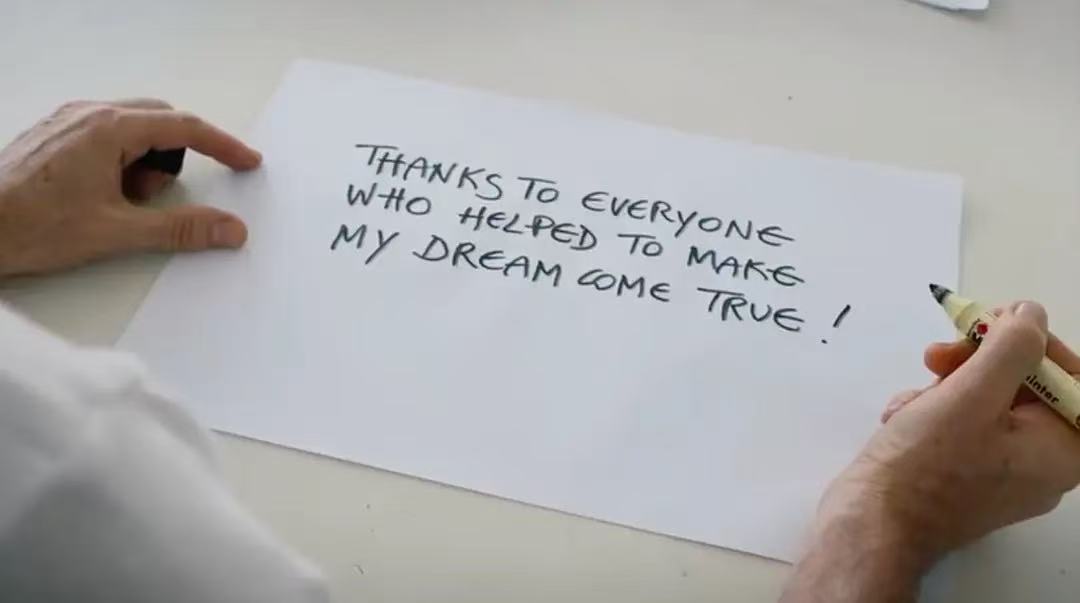 THANKS TO EVERYONE
WHO HELPED TO MAKE
MY DREAM COME TRUE!